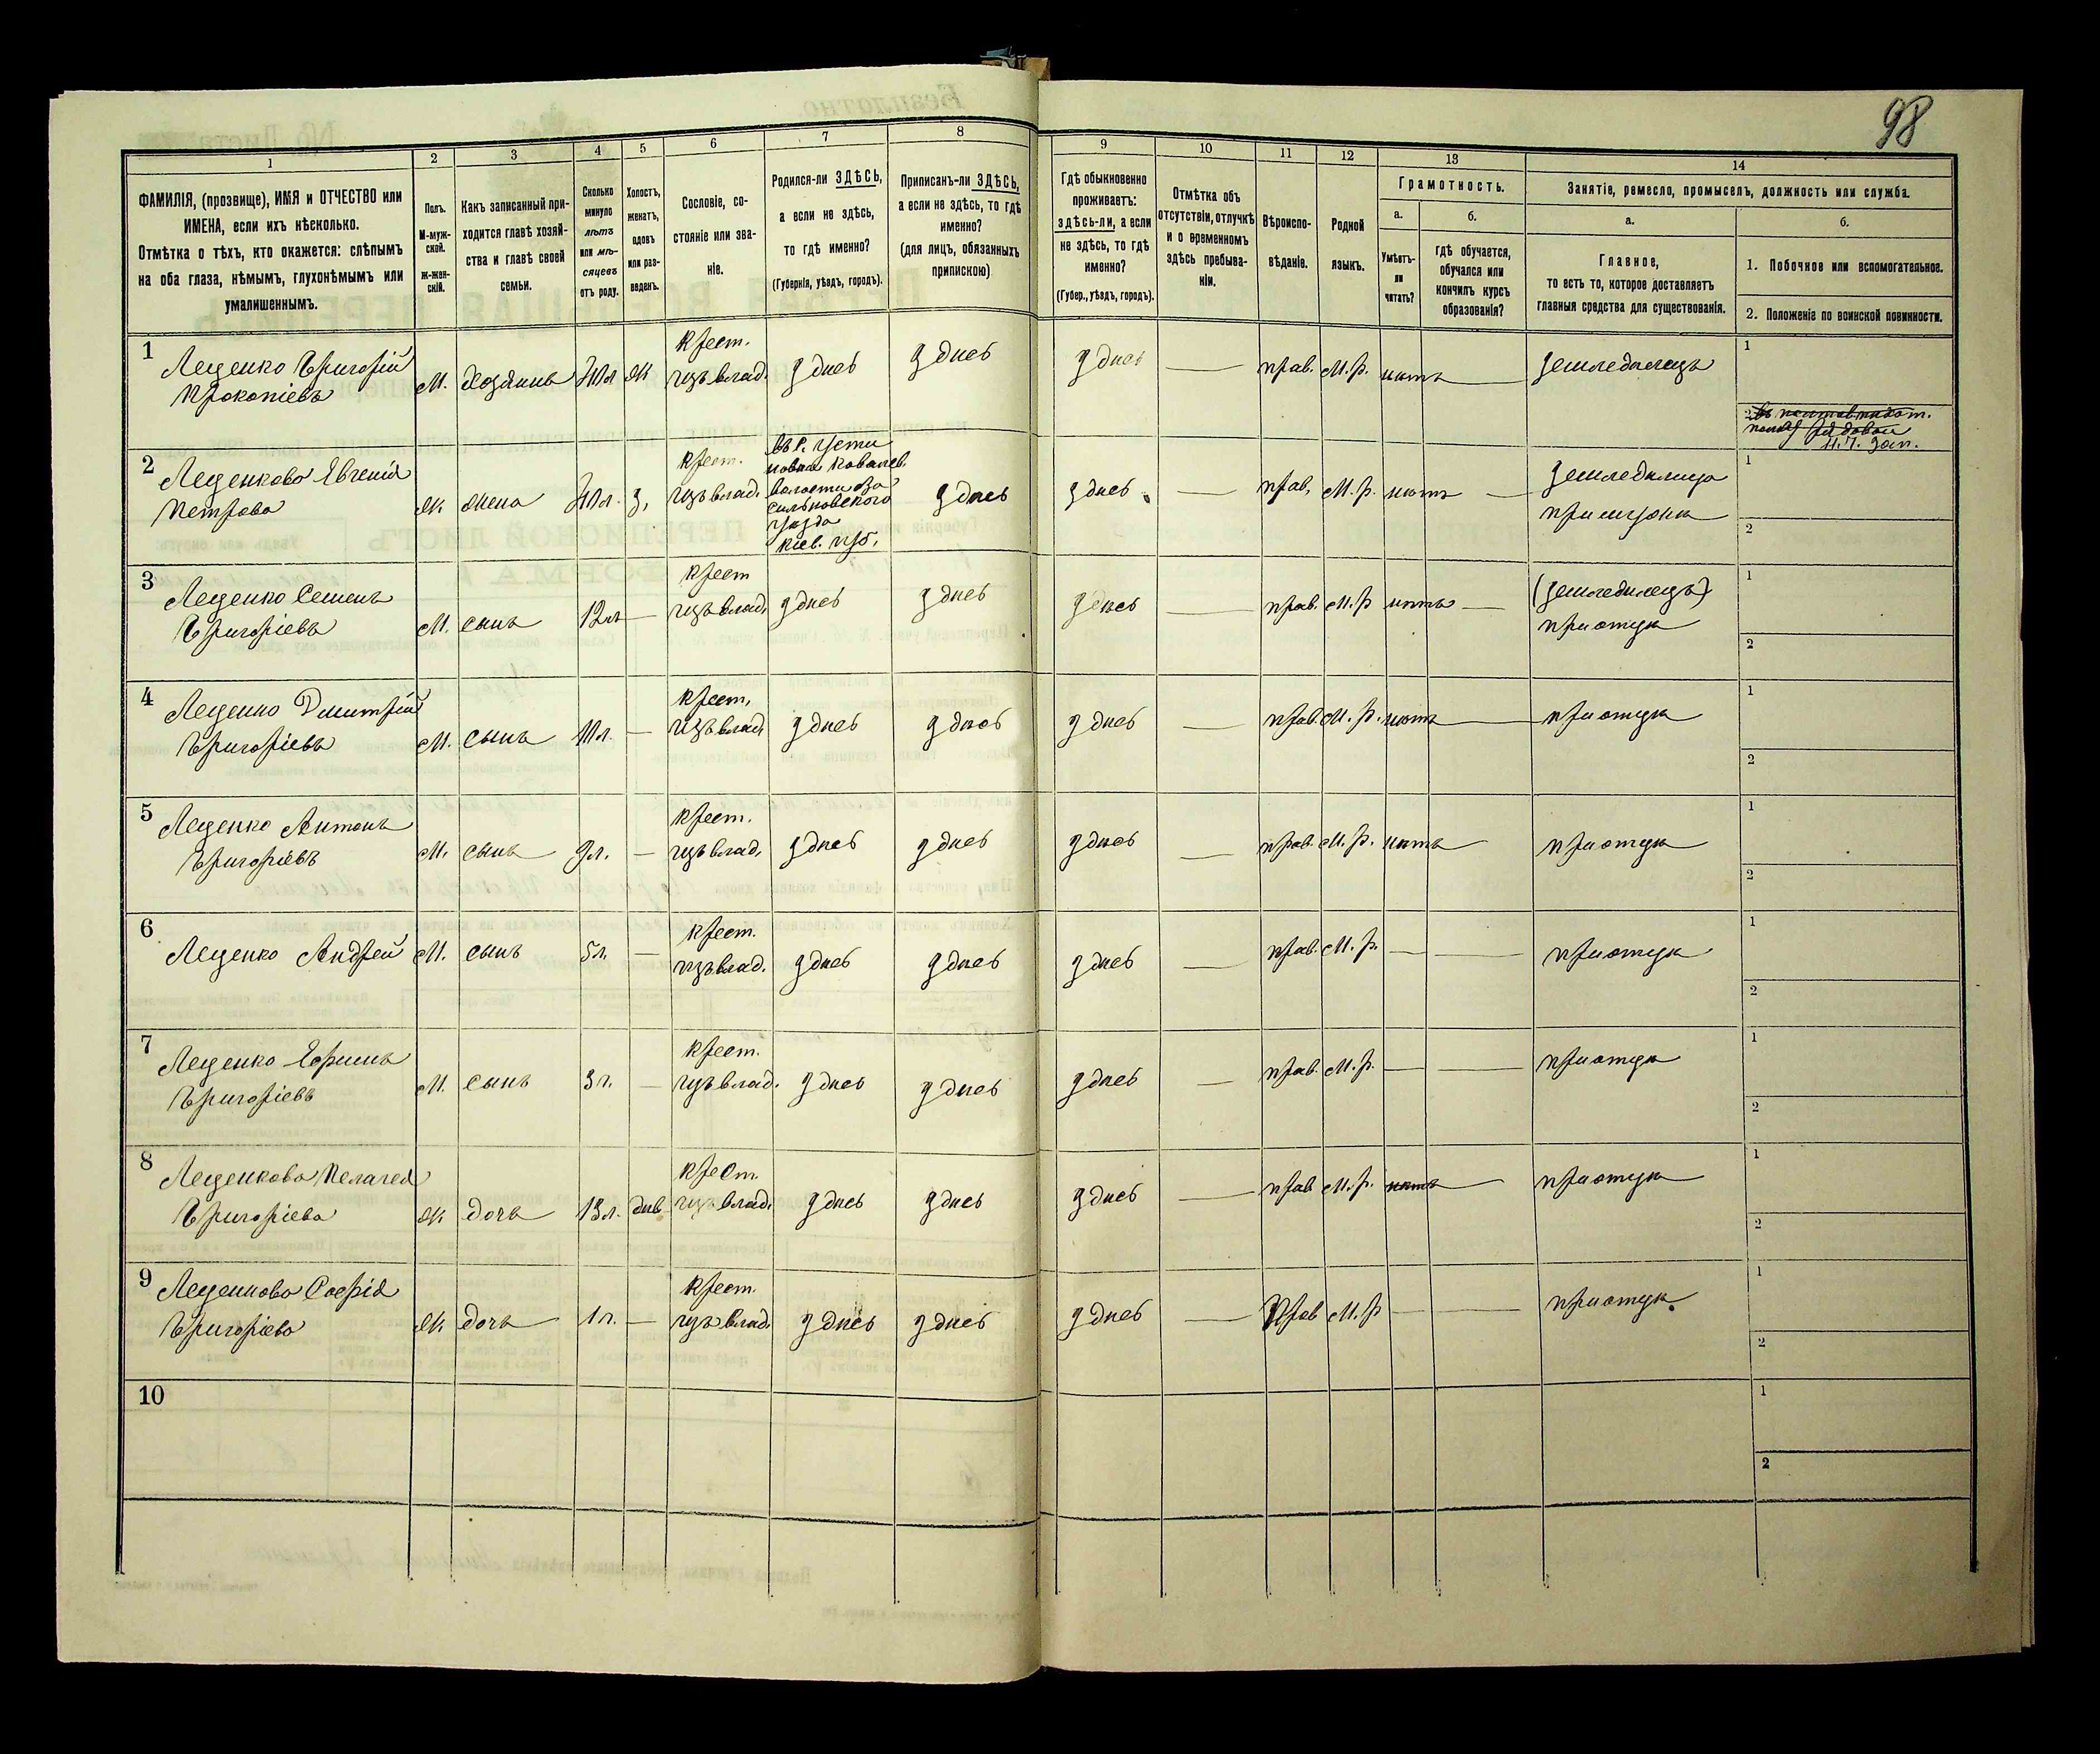 98
1
2
3
4
5
6
7
8
9
10
11
12
13
14
ФАМИЛІЯ, (прозвище), ИМЯ и ОТЧЕСТВО или
ИМЕНА, если ихъ нѣсколько.
Отмѣтка о тѣхъ, кто окажется: слѣпымъ
на оба глаза, нѣмымъ, глухонѣмымъ или
умалишеннымъ.
Полъ.
М-муж-
ской.
ж-жен-
скій.
Какъ записанный при-
ходится главѣ хозяй-
ства и главѣ своей
семьи.
Сколько
минуло
лѣтъ
или мѣ-
сяцевъ
отъ роду.
Холостъ,
женатъ,
вдовъ
или раз-
веденъ.
Сословіе, со-
стояніе или зва-
ніе.
Родился-ли ЗДѢСЬ,
а если не здѣсь,
то гдѣ именно?
(Губернія, уѣздъ, городъ).
Приписанъ-ли ЗДѢСЬ,
а если не здѣсь, то гдѣ
именно?
(для лицъ, обязанныхъ
припискою)
Гдѣ обыкновенно
проживаетъ:
здѣсь-ли, а если
не здѣсь, то гдѣ
именно?
(Губер., уѣздъ, городъ).
Отмѣтка объ
отсутствіи, отлучкѣ
и о временномъ
здѣсь пребыва-
ніи.
Вѣроиспо-
вѣданіе.
Родной
языкъ.
Грамотность.
а.
б.
Умѣетъ-
ли
читать?
гдѣ обучается,
обучался или
кончилъ курсъ
образованія?
Занятіе, ремесло, промыселъ, должность или служба.
а.
б.
Главное,
то есть то, которое доставляетъ
главныя средства для существованія.
1. Побочное или вспомогательное.
2. Положеніе по воинской повинности.
1
Лещенко Григорій
Прокопіевъ
М. Хозяинъ
Ж
Крест.
гцъ влад.
здпсь
здпсь
здпсь
прав. М.р. нетъ
земледелецъ
1
2
рядовой
зап.
2
Лещенкова Евгенія
Петрова
Ж жена
З.
Крест.
гцъ влад.
въ с. Усти
новка Ковалев.
волости Ва
сильковскаго
уезда
Кіев. губ.
здпсь
здпсь
прав. М.р. нетъ
земледелица
при мужи
1
2
3
Лещенко Семенъ
Григоріевъ
М. сынъ 12л
Крест
гцъ влад.
здпсь
здпсь
здпсь
прав. М.р нетъ
(земледелецъ)
при отци
1
2
4
Лещенко Дмитрій
Григоріевъ
М. сынъ 11л.
Крест.
гцъ влад
здпсь
здпсь
здпсь
прав М.р. нетъ
при отци
1
2
5
Лещенко Антонъ
Григоріевъ
М. сынъ 9л.
Крест.
гцъ влад.
здпсь
здпсь
здпсь
прав. М.р. нетъ
при отци
1
2
6
Лещенко Андрей
М. сынъ 5л.
Крест.
гцъ влад.
здпсь
здпсь
здпсь
прав. М.р.
при отци
1
2
7
Лещенко Ефимъ
Григоріевъ
М. сынъ 3л.
Крест.
гцъ влад.
здпсь
здпсь
здпсь
прав. М.р.
при отци
1
2
8
Лещенкова Пелагея
Григоріева
Ж дочь 13л. дев
Крест.
гцъ влад.
здпсь
здпсь
здпсь
прав М.р. нетъ
при отци
1
2
9
Лещенкова Софія
Григоріева
Ж дочь 1л.
Крест.
гцъ влад.
здпсь
здпсь
здпсь
прав М.р
при отци.
1
2
10
1
2